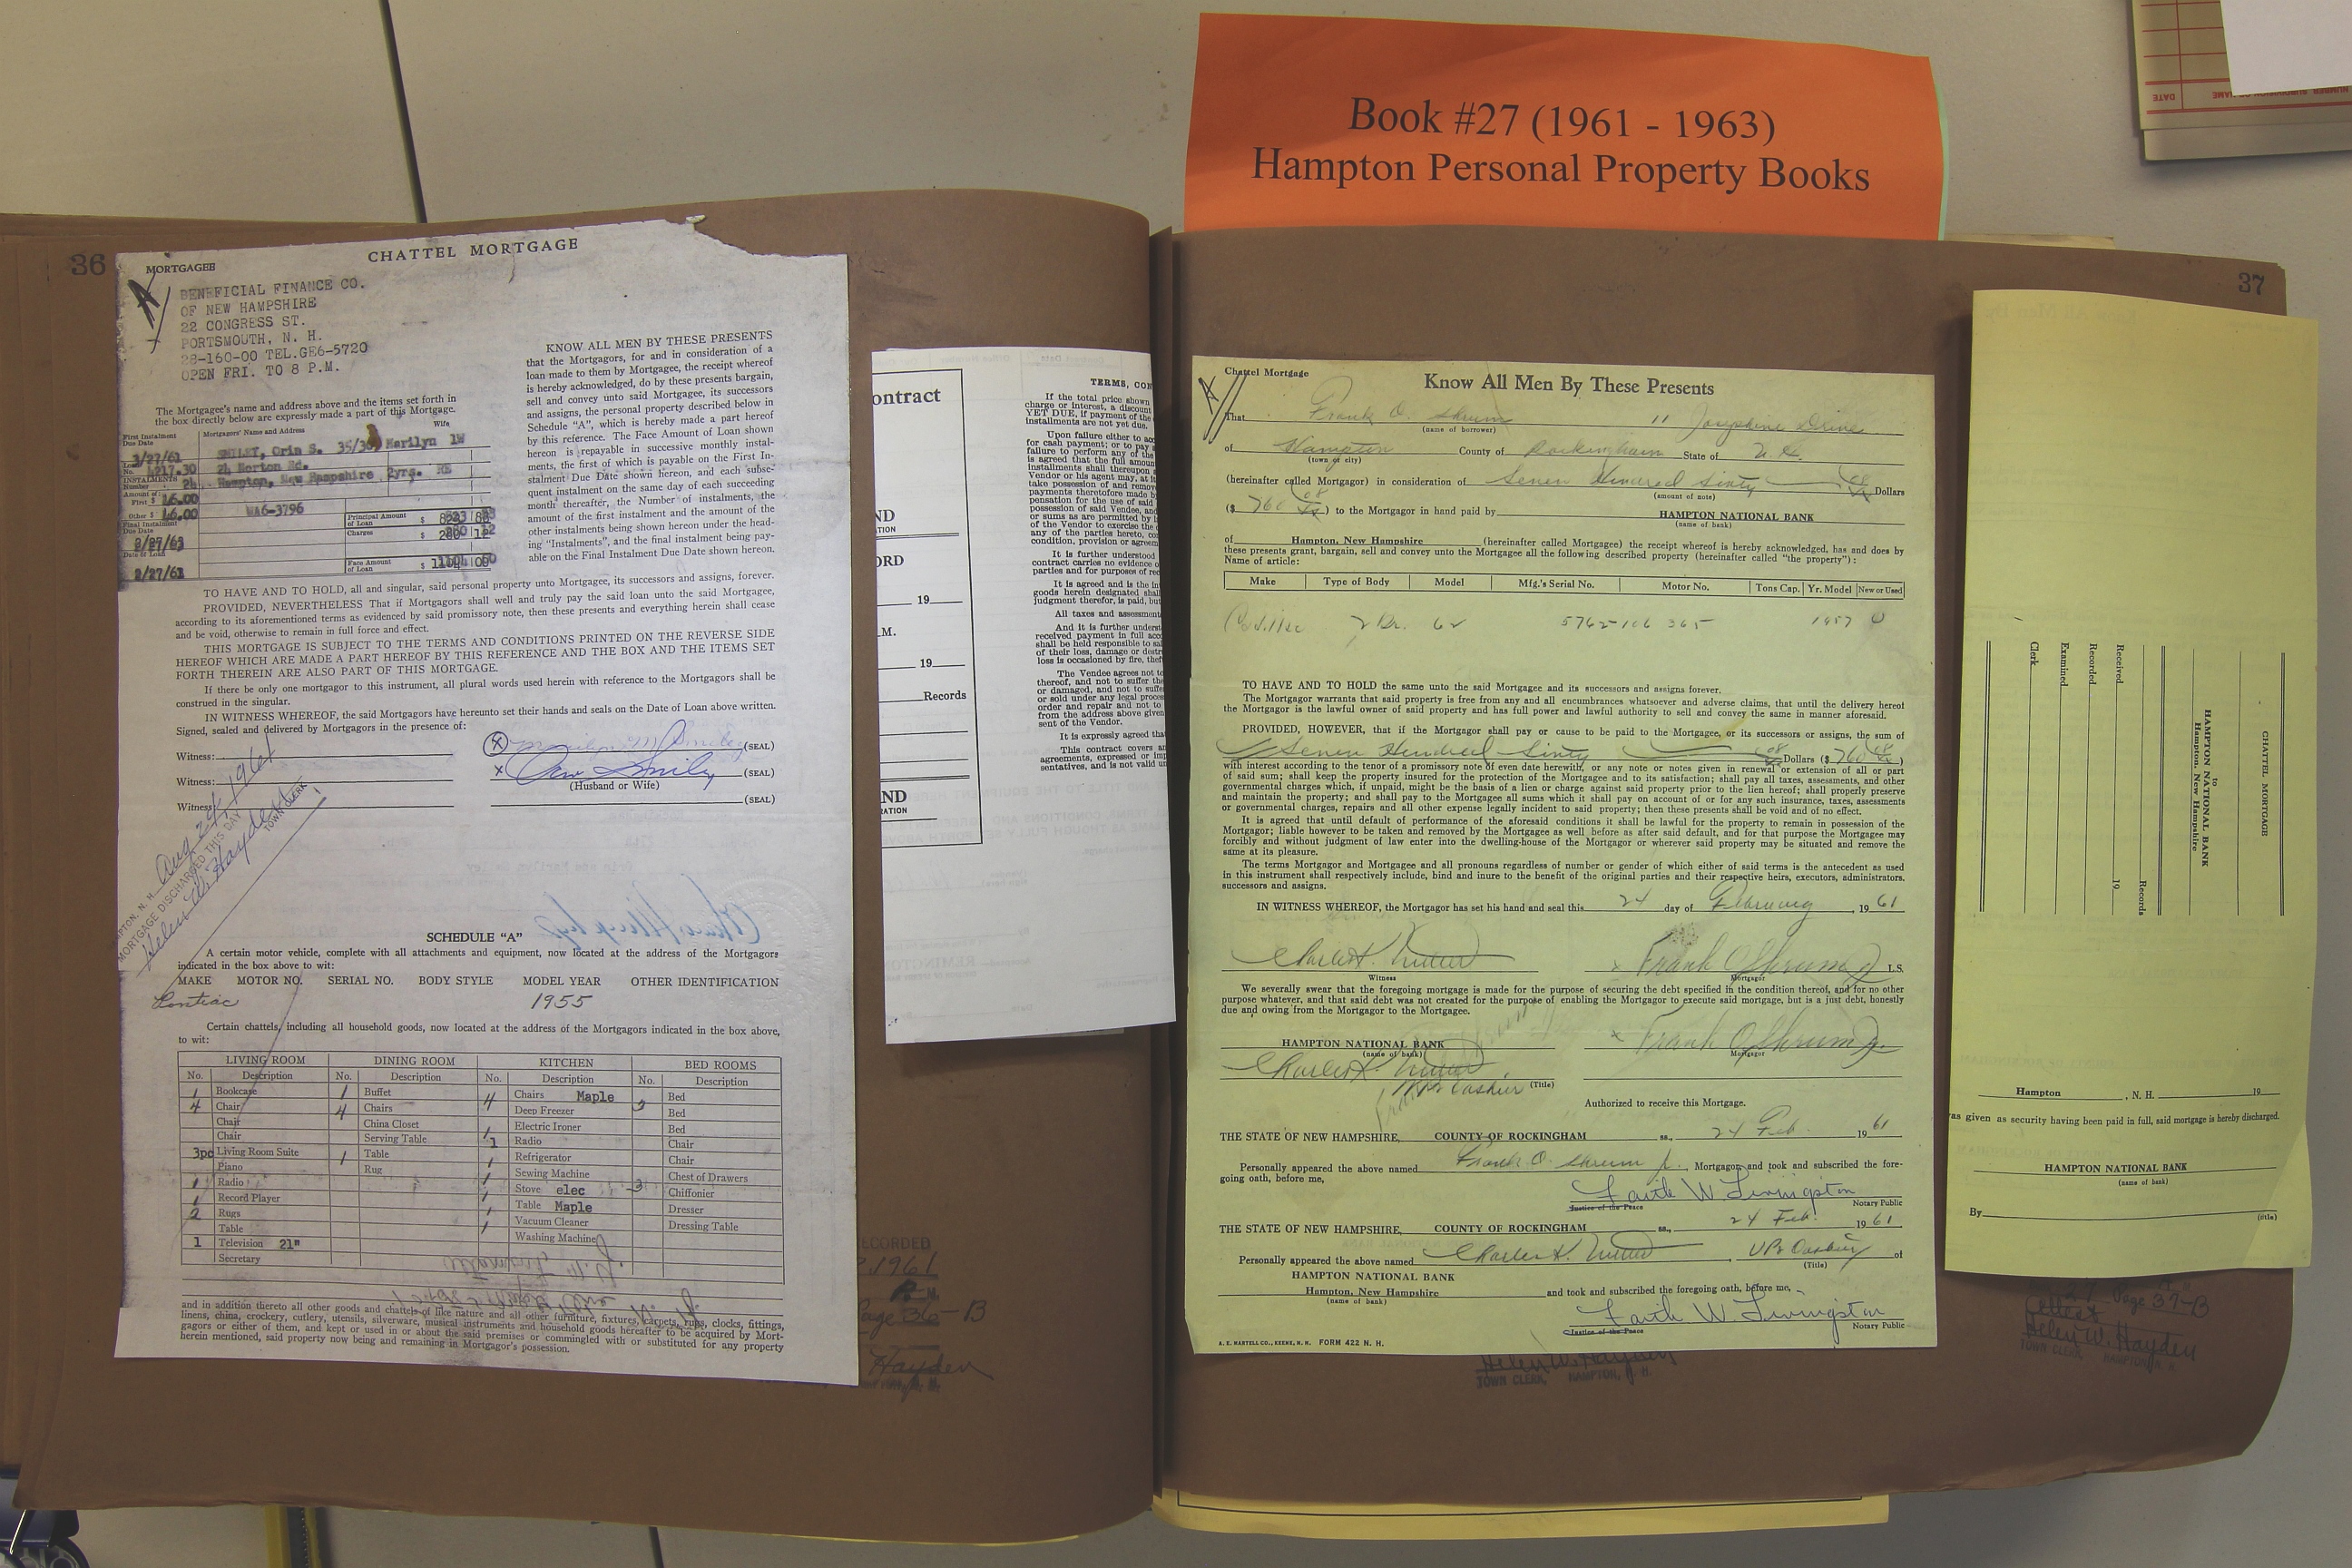 Book #27 (1961 - 1963)
Hampton Personal Property Books
36
CHATTEL MORTGAGE
MORTGAGEE
BENEFICIAL FINANCE CO.
OF NEW HAMPSHIRE
22 CONGRESS ST.
PORTSMOUTH, N. H.
28-160-00 TEL.GE6-5720
OPEN FRI. TO 8 P.M.
The Mortgagee's name and address above and the items set forth in
the box directly below are expressly made a part of this Mortgage.
First Instalment Due Date
Mortgagors' Name and Address
Wife
3/27/61
SMILEY, Orin S. 35/36, Marilyn
24 Norton Rd.
Hampton, New Hampshire 2yrs. RE
INSTALMENTS
Number 24
Amount of
First $ 46.00
Other $ 46.00
WA6-3796
Final Instalment
Due Date
2/27/63
Date of Loan
2/27/61
Principal Amount of Loan $
Charges $
Face Amount of Loan $
KNOW ALL MEN BY THESE PRESENTS
that the Mortgagors, for and in consideration of a
loan made to them by Mortgagee, the receipt whereof
is hereby acknowledged, do by these presents bargain,
sell and convey unto said Mortgagee, its successors
and assigns, the personal property described below in
Schedule "A", which is hereby made a part hereof
by this reference. The Face Amount of Loan shown
hereon is repayable in successive monthly instal-
ments, the first of which is payable on the First In-
stalment Due Date shown hereon, and each subse-
quent instalment on the same day of each succeeding
month thereafter, the Number of instalments, the
amount of the first instalment and the amount of the
other instalments being shown hereon under the head-
ing "Instalments", and the final instalment being pay-
able on the Final Instalment Due Date shown hereon.
TO HAVE AND TO HOLD, all and singular, said personal property unto Mortgagee, its successors and assigns, forever.
PROVIDED, NEVERTHELESS That if Mortgagors shall well and truly pay the said loan unto the said Mortgagee,
according to its aforementioned terms as evidenced by said promissory note, then these presents and everything herein shall cease
and be void, otherwise to remain in full force and effect.
THIS MORTGAGE IS SUBJECT TO THE TERMS AND CONDITIONS PRINTED ON THE REVERSE SIDE
HEREOF WHICH ARE MADE A PART HEREOF BY THIS REFERENCE AND THE BOX AND THE ITEMS SET
FORTH THEREIN ARE ALSO PART OF THIS MORTGAGE.
If there be only one mortgagor to this instrument, all plural words used herein with reference to the Mortgagors shall be
construed in the singular.
IN WITNESS WHEREOF, the said Mortgagors have hereunto set their hands and seals on the Date of Loan above written.
Signed, sealed and delivered by Mortgagors in the presence of:
Witness: X Marilyn M Smiley (SEAL)
Witness: X Orin Smiley (SEAL)
(Husband or Wife)
Witness: (SEAL)
HAMPTON, N. H. Aug 29, 1961
MORTGAGE DISCHARGED THIS DAY
Helen W. Hayden
TOWN CLERK
SCHEDULE "A"
A certain motor vehicle, complete with all attachments and equipment, now located at the address of the Mortgagors
indicated in the box above to wit:
MAKE MOTOR NO. SERIAL NO. BODY STYLE MODEL YEAR OTHER IDENTIFICATION
Pontiac 1955
Certain chattels, including all household goods, now located at the address of the Mortgagors indicated in the box above,
to wit:
LIVING ROOM DINING ROOM KITCHEN BED ROOMS
No. Description No. Description No. Description No. Description
1 Bookcase 1 Buffet 4 Chairs Maple Bed
4 Chair 4 Chairs Deep Freezer Bed
Chair China Closet Electric Ironer Bed
Chair Serving Table 1 Radio Chair
3pc Living Room Suite 1 Table 1 Refrigerator Chair
Piano Rug 1 Sewing Machine Chest of Drawers
1 Radio 1 Stove elec 3 Chiffonier
1 Record Player 1 Table Maple Dresser
2 Rugs 1 Vacuum Cleaner Dressing Table
Table Washing Machine
1 Television 21"
Secretary
and in addition thereto all other goods and chattels of like nature and all other furniture, fixtures, carpets, rugs, clocks, fittings,
linens, china, crockery, cutlery, utensils, silverware, musical instruments and household goods hereafter to be acquired by Mort-
gagors or either of them, and kept or used in or about the said premises or commingled with or substituted for any property
herein mentioned, said property now being and remaining in Mortgagor's possession.
ontract
ND
ATION
ORD
19
.M.
19
Records
ND
RATION
TERMS, CON
If the total price shown
charge or interest, a discount
YET DUE, if payment of the
installments are not yet due.
Upon failure either to
for cash payment; or to pay
failure to perform any of the
is agreed that the full amount
installments shall thereupon
Vendor or his agent may, at
take possession of and remove
payments theretofore made
pensation for the use of said
possession of said Vendee, and
or sums as are permitted by
of the Vendor to exercise the
any of the parties hereto, con
condition, provision or agreem
It is further understood
contract carries no evidence
parties and for purposes of rec
It is agreed and is the in
goods herein designated shall
judgment therefor, is paid, but
All taxes and assessment
And it is further underst
received payment in full acc
shall be held responsible to sa
of their loss, damage or destr
loss is occasioned by fire, thef
The Vendee agrees not to
thereof, and not to suffer the
or damaged, and not to suffe
or sold under any legal proce
order and repair and not to
from the address above given
sent of the Vendor.
It is expressly agreed tha
This contract covers an
agreements, expressed or imp
sentatives, and is not valid un
ECORDED
1961
Page 36-B
Hayden
37
Chattel Mortgage
Know All Men By These Presents
That Frank O. Shrum " Josephine Drive
(name of borrower)
of Hampton County of Rockingham State of N. H.
(town or city)
(hereinafter called Mortgagor) in consideration of Seven Hundred Sixty 08/xx Dollars
(amount of note)
($ 760 08/xx ) to the Mortgagor in hand paid by HAMPTON NATIONAL BANK
(name of bank)
of Hampton, New Hampshire (hereinafter called Mortgagee) the receipt whereof is hereby acknowledged, has and does by
these presents grant, bargain, sell and convey unto the Mortgagee all the following described property (hereinafter called "the property"):
Name of article:
Make Type of Body Model Mfg.'s Serial No. Motor No. Tons Cap. Yr. Model New or Used
Cadillac 2 Dr. 62 5762-106 365 1957 U
TO HAVE AND TO HOLD the same unto the said Mortgagee and its successors and assigns forever.
The Mortgagor warrants that said property is free from any and all encumbrances whatsoever and adverse claims, that until the delivery hereof
the Mortgagor is the lawful owner of said property and has full power and lawful authority to sell and convey the same in manner aforesaid.
PROVIDED, HOWEVER, that if the Mortgagor shall pay or cause to be paid to the Mortgagee, or its successors or assigns, the sum of
Seven Hundred Sixty 08/xx Dollars ($ 760 08/xx )
with interest according to the tenor of a promissory note of even date herewith, or any note or notes given in renewal or extension of all or part
of said sum; shall keep the property insured for the protection of the Mortgagee and to its satisfaction; shall pay all taxes, assessments, and other
governmental charges which, if unpaid, might be the basis of a lien or charge against said property prior to the lien hereof; shall properly preserve
and maintain the property; and shall pay to the Mortgagee all sums which it shall pay on account of or for any such insurance, taxes, assessments
or governmental charges, repairs and all other expense legally incident to said property; then these presents shall be void and of no effect.
It is agreed that until default of performance of the aforesaid conditions it shall be lawful for the property to remain in possession of the
Mortgagor; liable however to be taken and removed by the Mortgagee as well before as after said default, and for that purpose the Mortgagee may
forcibly and without judgment of law enter into the dwelling-house of the Mortgagor or wherever said property may be situated and remove the
same at its pleasure.
The terms Mortgagor and Mortgagee and all pronouns regardless of number or gender of which either of said terms is the antecedent as used
in this instrument shall respectively include, bind and inure to the benefit of the original parties and their respective heirs, executors, administrators,
successors and assigns.
IN WITNESS WHEREOF, the Mortgagor has set his hand and seal this 24 day of February, 19 61
Charles H. Frank O Shrum Jr L.S.
Witness Mortgagor
We severally swear that the foregoing mortgage is made for the purpose of securing the debt specified in the condition thereof, and for no other
purpose whatever, and that said debt was not created for the purpose of enabling the Mortgagor to execute said mortgage, but is a just debt, honestly
due and owing from the Mortgagor to the Mortgagee.
HAMPTON NATIONAL BANK x Frank O Shrum Jr
(name of bank) Mortgagor
Charles H.
VPr Cashier (Title)
Authorized to receive this Mortgage.
THE STATE OF NEW HAMPSHIRE, COUNTY OF ROCKINGHAM ss., 24 Feb. 19 61
Personally appeared the above named Frank O. Shrum Jr., Mortgagor and took and subscribed the fore-
going oath, before me,
Faith W Livingston
Justice of the Peace Notary Public
THE STATE OF NEW HAMPSHIRE, COUNTY OF ROCKINGHAM ss., 24 Feb. 19 61
Personally appeared the above named Charles H. , VPr Cashier of
(Title)
HAMPTON NATIONAL BANK
Hampton, New Hampshire and took and subscribed the foregoing oath, before me,
(name of bank)
Faith W Livingston
Justice of the Peace Notary Public
A. E. MARTELL CO., KEENE, N. H. FORM 422 N. H.
Helen W. Hayden
TOWN CLERK, HAMPTON, N. H.
CHATTEL MORTGAGE
to
HAMPTON NATIONAL BANK
Hampton, New Hampshire
Records
Received 19
Recorded
Examined
Clerk
Hampton , N. H. 19
as given as security having been paid in full, said mortgage is hereby discharged.
HAMPTON NATIONAL BANK
(name of bank)
By
(title)
Page 37-B
Helen W. Hayden
TOWN CLERK, HAMPTON, N. H.
DATE